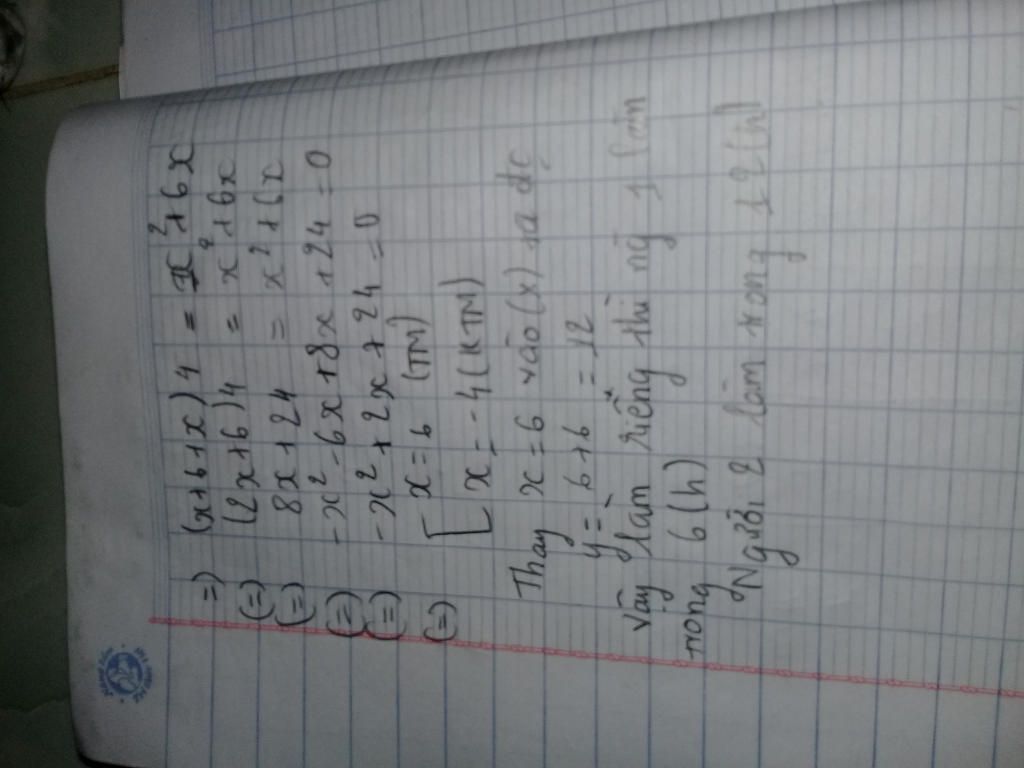 =) (x+6+x) 4 = x²+6x
(=) (2x+6) 4 = x²+6x
(=) 8x+24 = x²+6x
(=) -x²-6x+8x+24 = 0
(=) -x²+2x+24 = 0
(=) [ x = 6 (TM)
x = -4 (KTM)
Thay x = 6 vào (x) ta đc
y = 6+6 = 12
Vậy làm riêng thì ng 1 làm
trong 6 (h)
Người 2 làm trong 12 (h)